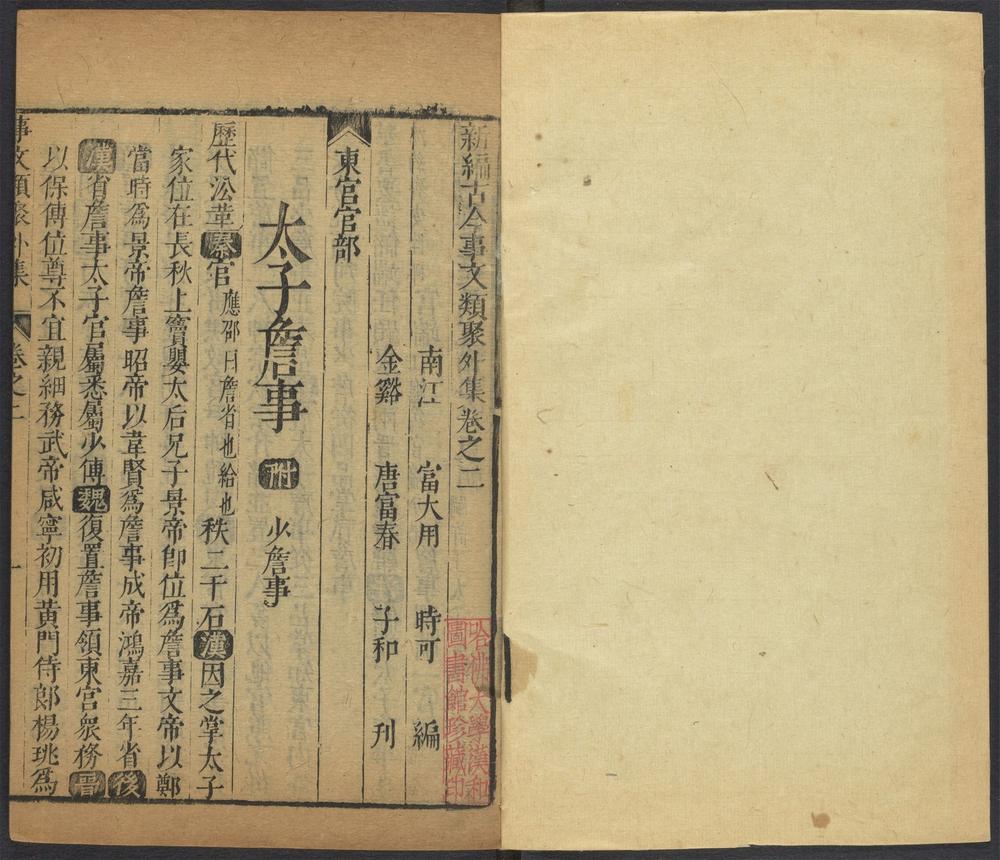 新編古今事文類聚外集卷之二
南江 富大用 時可 編
金谿 唐富春 子和 刊
東官官部
太子詹事 附 少詹事
歷代沿革秦官應邵曰詹省也給也秩二千石漢因之掌太子
家位在長秋上竇嬰太后兄子景帝卽位爲詹事文帝以鄭
當時爲景帝詹事昭帝以韋賢爲詹事成帝鴻嘉三年省後
漢省詹事太子官屬悉屬少傅魏復置詹事領東宫衆務晉
以保傅位尊不宜親細務武帝咸寧初用黃門侍郞楊珧爲
事文類聚外集 卷之二 一
哈佛大學漢和
圖書館珍藏印